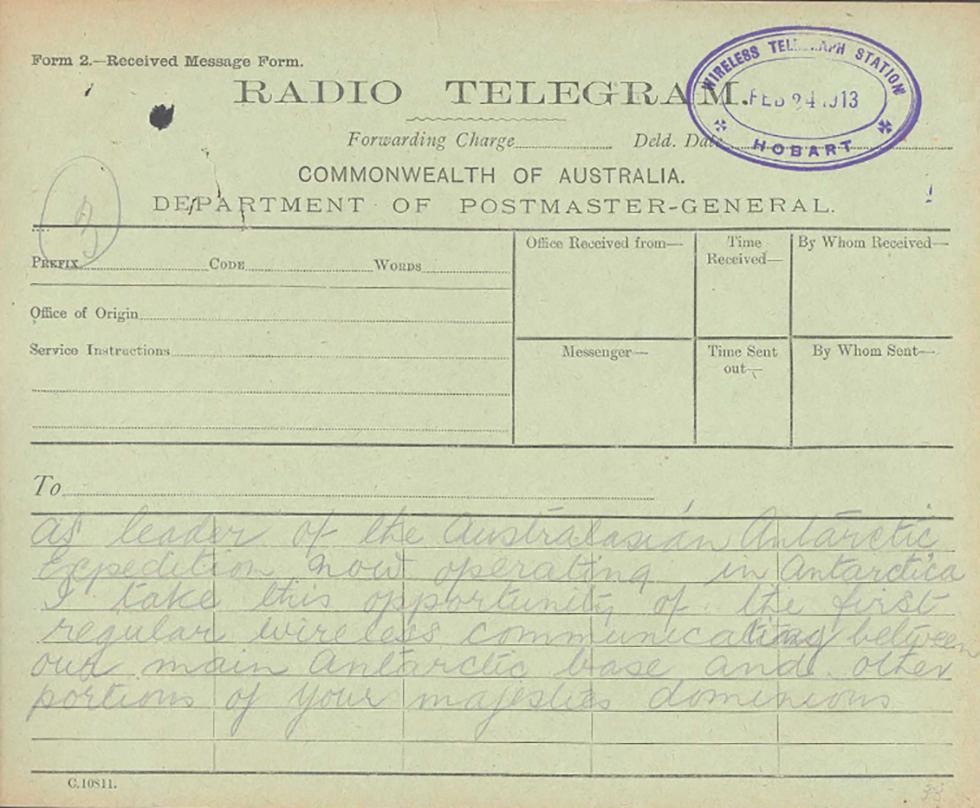 Form 2.—Received Message Form.
RADIO TELEGRAM.
WIRELESS TELEGRAPH STATION
FEB 24 1913
HOBART
Forwarding Charge Deld. Date
COMMONWEALTH OF AUSTRALIA.
DEPARTMENT OF POSTMASTER-GENERAL.
PREFIX CODE WORDS
Office of Origin
Service Instructions
Office Received from—
Time Received—
By Whom Received—
Messenger—
Time Sent out—
By Whom Sent—
To
as leader of the Australasian Antarctic
Expedition now operating in Antarctica
I take this opportunity of the first
regular wireless between
our main Antarctic base and other
portions of your majesties dominions
C.10811.